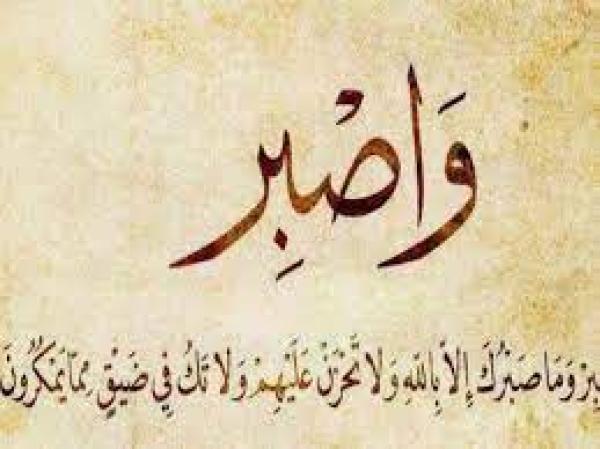 وَاصْبِرْ
وَمَا صَبْرُكَ إِلاَّ بِاللّٰهِ وَلَا تَحْزَنْ عَلَيْهِمْ وَلَا تَكُ فِي ضَيْقٍ مِمَّا يَمْكُرُونَ